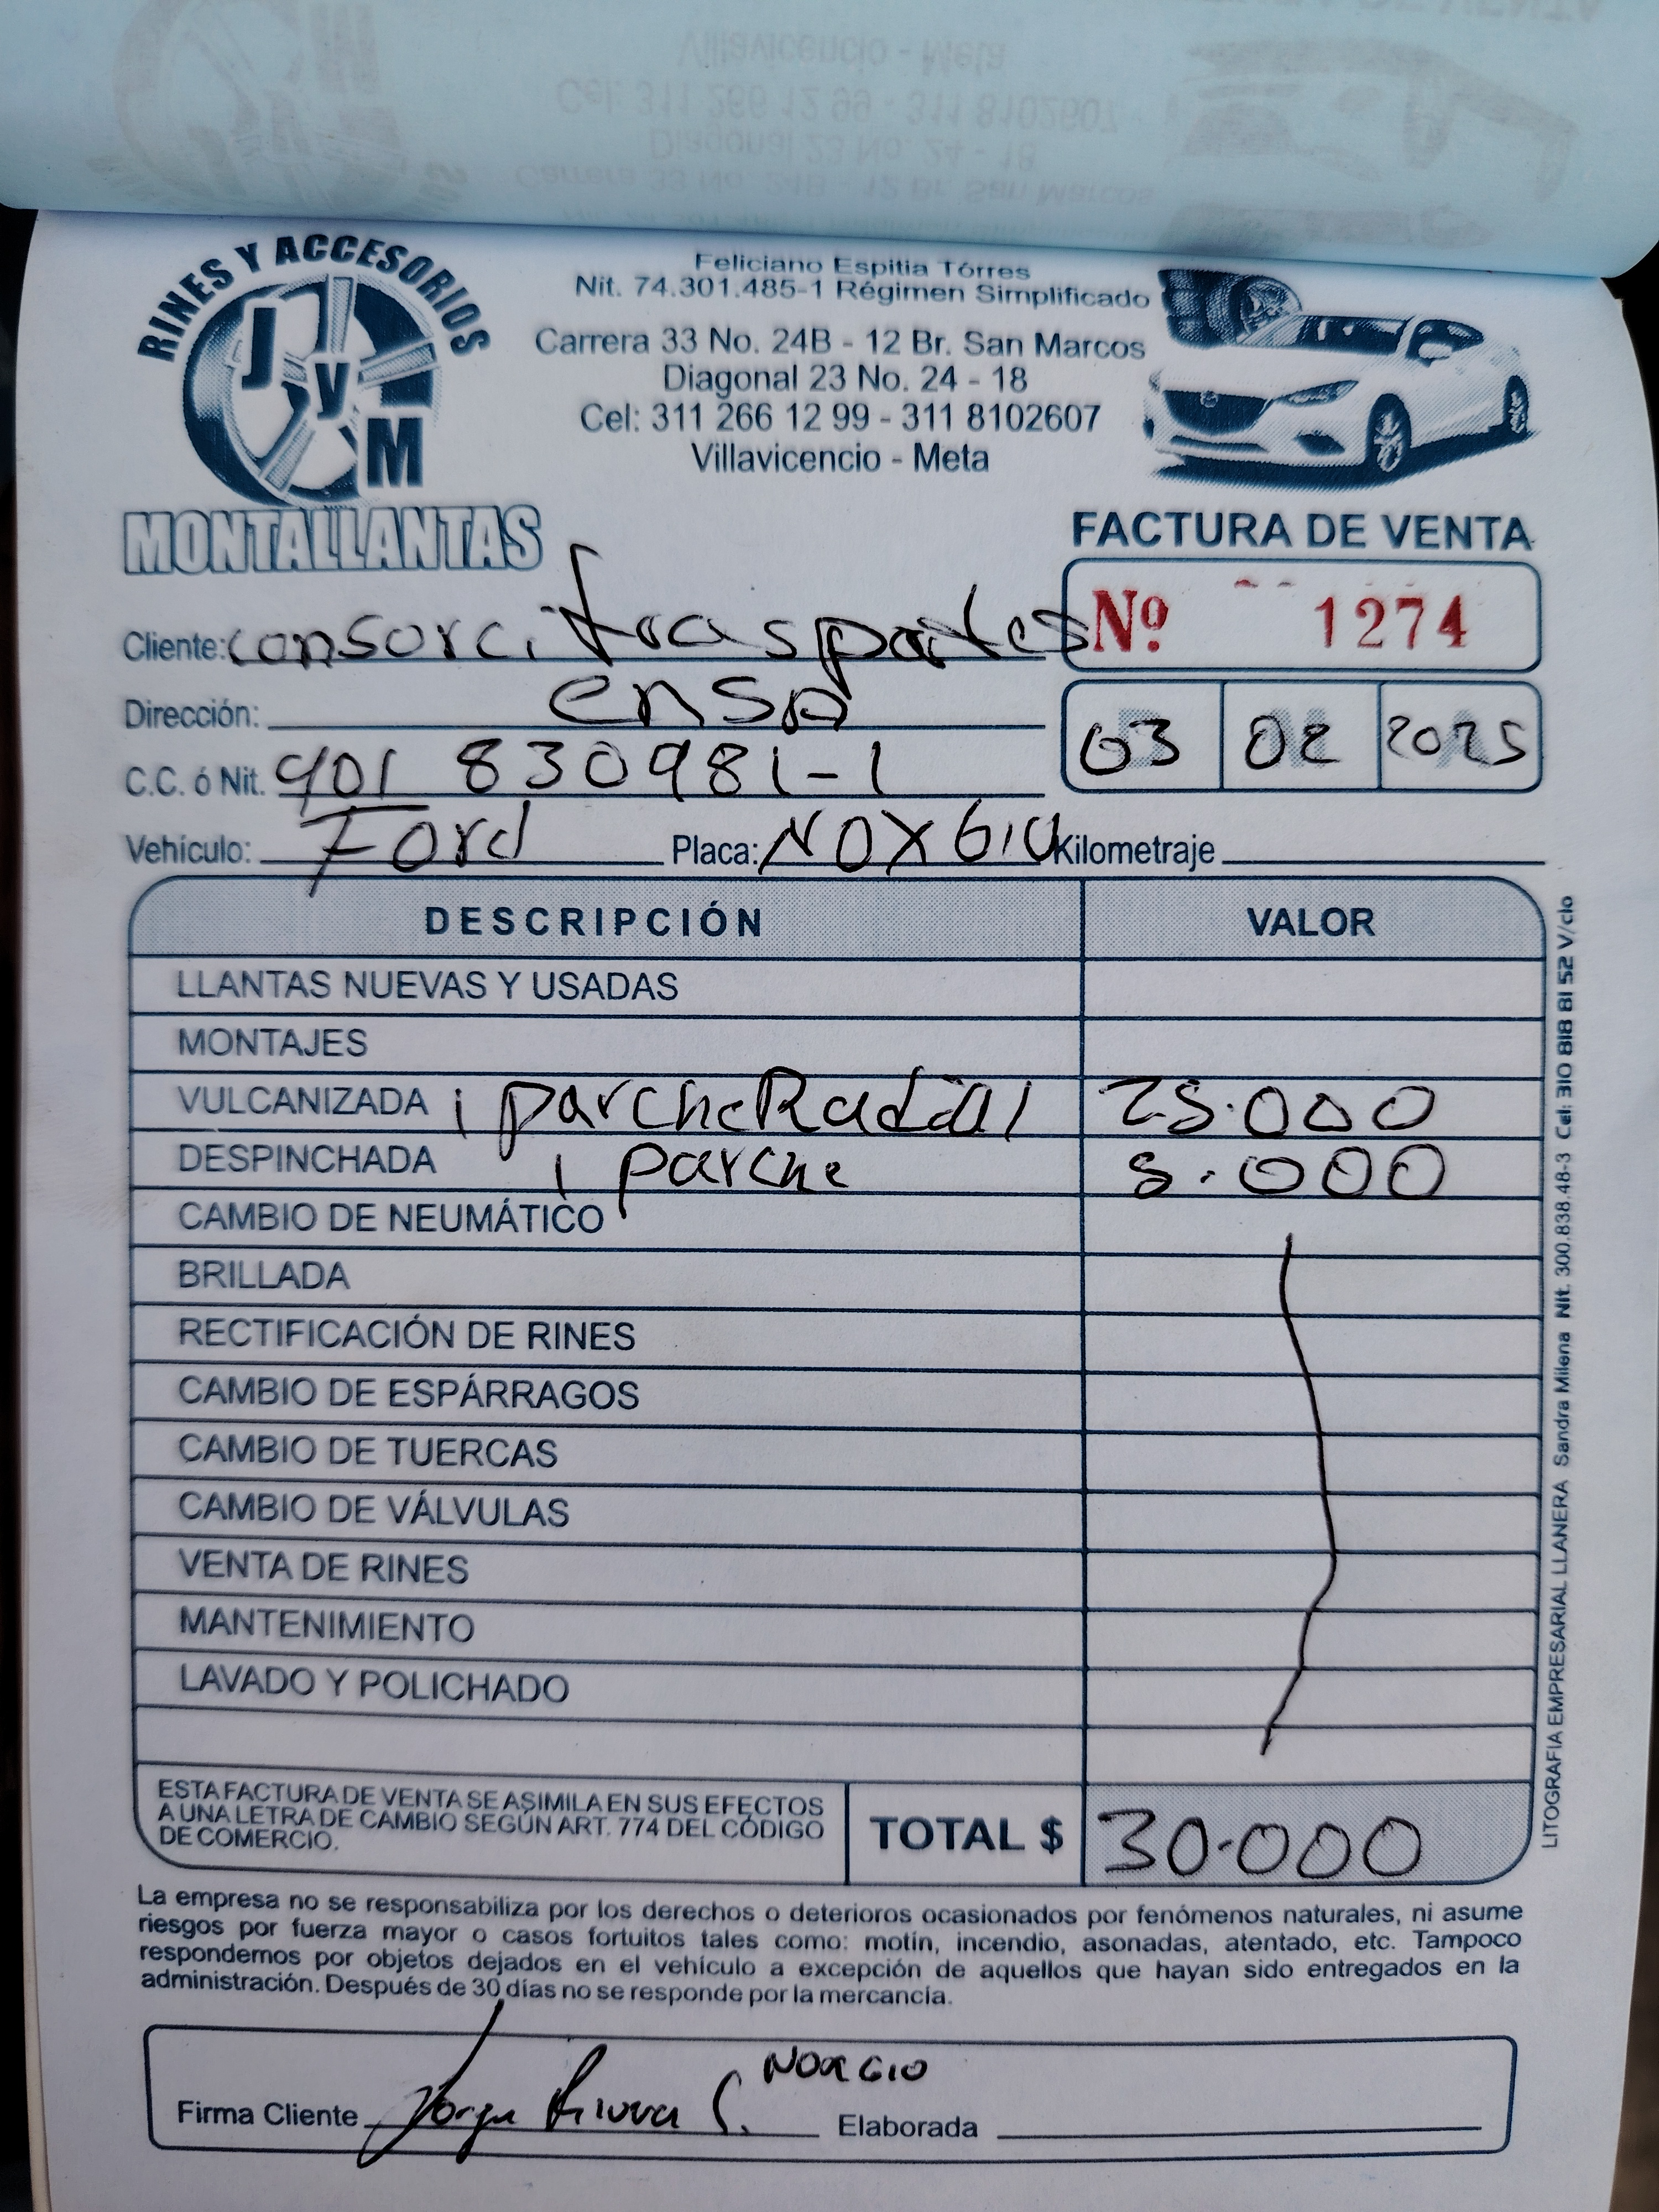 Villavicencio - Meta
Cel: 311 266 12 99 - 311 8102607
Diagonal 23 No. 24 - 18
Carrera 33 No. 24B - 12 Br. San Marcos
RINES Y ACCESORIOS
J y M
MONTALLANTAS
Feliciano Espitia Tórres
Nit. 74.301.485-1 Régimen Simplificado
Carrera 33 No. 24B - 12 Br. San Marcos
Diagonal 23 No. 24 - 18
Cel: 311 266 12 99 - 311 8102607
Villavicencio - Meta
FACTURA DE VENTA
Nº 1274
Cliente: consorci trasportes
Dirección: ensa
03 02 2025
C.C. ó Nit. 901 830981-1
Vehículo: Ford Placa: NOX610 Kilometraje
DESCRIPCIÓN VALOR
LLANTAS NUEVAS Y USADAS
MONTAJES
VULCANIZADA 1 parche Radial 25.000
DESPINCHADA 1 parche 5.000
CAMBIO DE NEUMÁTICO
BRILLADA
RECTIFICACIÓN DE RINES
CAMBIO DE ESPÁRRAGOS
CAMBIO DE TUERCAS
CAMBIO DE VÁLVULAS
VENTA DE RINES
MANTENIMIENTO
LAVADO Y POLICHADO
ESTA FACTURA DE VENTA SE ASIMILA EN SUS EFECTOS
A UNA LETRA DE CAMBIO SEGÚN ART. 774 DEL CÓDIGO
DE COMERCIO.
TOTAL $ 30.000
LITOGRAFIA EMPRESARIAL LLANERA Sandra Milena Nit. 300.838.48-3 Cel: 310 818 81 52 V/cio
La empresa no se responsabiliza por los derechos o deterioros ocasionados por fenómenos naturales, ni asume
riesgos por fuerza mayor o casos fortuitos tales como: motín, incendio, asonadas, atentado, etc. Tampoco
respondemos por objetos dejados en el vehículo a excepción de aquellos que hayan sido entregados en la
administración. Después de 30 días no se responde por la mercancía.
NOX610
Firma Cliente Jorge Rivera S. Elaborada